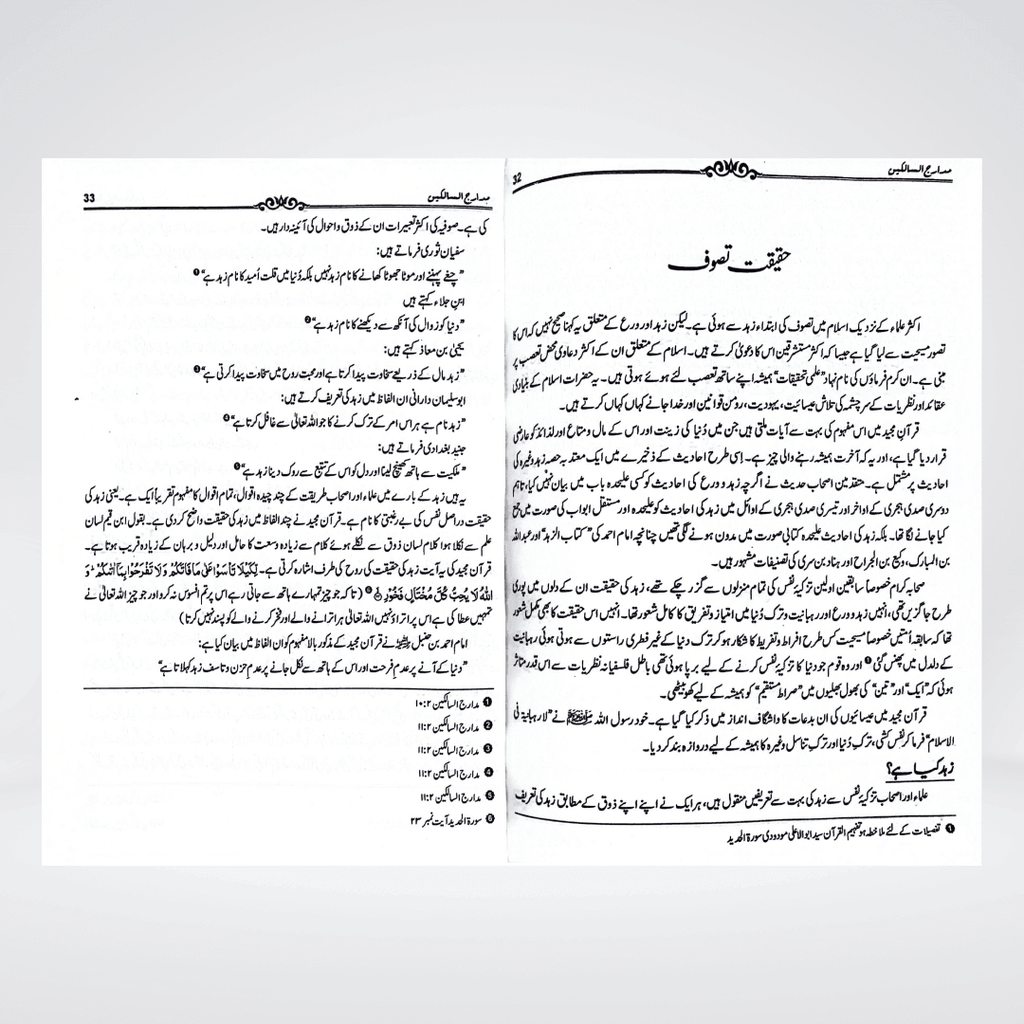 مدارج السالکین
32
حقیقت تصوف
اکثر علماء کے نزدیک اسلام میں تصوف کی ابتداء زہد سے ہوئی ہے۔ لیکن زہد اور ورع کے متعلق یہ کہنا صحیح نہیں کہ اس کا
تصور مسیحیت سے لیا گیا ہے جیسا کہ اکثر مستشرقین اس کا دعویٰ کرتے ہیں۔ اسلام کے متعلق ان کے اکثر دعاوی محض تعصب پر
مبنی ہے۔ ان کرم فرماؤں کی نام نہاد ”علمی تحقیقات“ ہمیشہ اپنے ساتھ تعصب لئے ہوئے ہوتی ہیں۔ یہ حضرات اسلام کے بنیادی
عقائد اور نظریات کے سرچشمہ کی تلاش عیسائیت، یہودیت، رومن قوانین اور خدا جانے کہاں کہاں کرتے ہیں۔
قرآن مجید میں اس مفہوم کی بہت سے آیات ملتی ہیں جن میں دُنیا کی زینت اور اس کے مال ومتاع اور لذائذ کو عارضی
قرار دیا گیا ہے، اور یہ کہ آخرت ہمیشہ رہنے والی چیز ہے۔ اِسی طرح احادیث کے ذخیرے میں ایک معتد بہ حصہ زہد وغیرہ کی
احادیث پر مشتمل ہے۔ متقدمین اصحاب حدیث نے اگرچہ زہد و ورع کی احادیث کو کسی علیحدہ باب میں بیان نہیں کیا، تاہم
دوسری صدی ہجری کے اواخر اور تیسری صدی ہجری کے اوائل میں زہد کی احادیث کو علیحدہ اور مستقل ابواب کی صورت میں جمع
کیا جانے لگا تھا۔ بلکہ زہد کی احادیث علیحدہ کتابی صورت میں مدون ہونے لگی تھیں چنانچہ امام احمد کی ”کتاب الزہد“ اور عبداللہ
بن المبارک، وکیع بن الجراح اور ہناد بن سری کی تصنیفات مشہور ہیں۔
صحابہ کرام خصوصاً سابقین اولین تزکیۂ نفس کی تمام منزلوں سے گزر چکے تھے، زہد کی حقیقت ان کے دلوں میں پوری
طرح جاگزیں تھی، انہیں زہد و ورع اور رہبانیت وترک دُنیا میں امتیاز وتفریق کا کامل شعور تھا۔ انہیں اس حقیقت کا بھی مکمل شعور
تھا کہ سابقہ اُمتیں خصوصاً مسیحیت کس طرح افراط وتفریط کا شکار ہو کر ترک دنیا کے غیر فطری راستوں سے ہوتی ہوئی رہبانیت
کے دلدل میں پھنس گئی ❶ اور وہ قوم جو دنیا کا تزکیۂ نفس کرنے کے لیے برپا ہوئی تھی باطل فلسفیانہ نظریات سے اس قدر متاثر
ہوئی کہ ”ایک“ اور ”تین“ کی بھول بھلیوں میں ”صراط مستقیم“ کو ہمیشہ کے لیے کھو بیٹھی۔
قرآن مجید میں عیسائیوں کی ان بدعات کا واشگاف انداز میں ذکر کیا گیا ہے۔ خود رسول اللہ ﷺ نے ”لا رہبانیۃ فی
الاسلام“ فرما کر نفس کشی، ترکِ دُنیا اور ترکِ تناسل وغیرہ کا ہمیشہ کے لیے دروازہ بند کر دیا۔
زہد کیا ہے؟
علماء اور اصحاب تزکیۂ نفس سے زہد کی بہت سے تعریفیں منقول ہیں، ہر ایک نے اپنے اپنے ذوق کے مطابق زہد کی تعریف
❶ تفصیلات کے لئے ملاحظہ ہو تفہیم القرآن سید ابوالاعلی مودودی سورۃ الحدید
مدارج السالکین
33
کی ہے۔ صوفیہ کی اکثر تعبیرات ان کے ذوق واحوال کی آئینہ دار ہیں۔
سفیان ثوری فرماتے ہیں:
”چغے پہننے اور موٹا جھوٹا کھانے کا نام زہد نہیں بلکہ دُنیا میں قلت اُمید کا نام زہد ہے“ ❶
ابن جلاء کہتے ہیں
”دنیا کو زوال کی آنکھ سے دیکھنے کا نام زہد ہے“ ❷
یحییٰ بن معاذ کہتے ہیں:
”زہد مال کے ذریعے سخاوت پیدا کرتا ہے اور محبت روح میں سخاوت پیدا کرتی ہے“ ❸
ابو سلیمان دارانی ان الفاظ میں زہد کی تعریف کرتے ہیں:
”زہد نام ہے ہر اس امر کے ترک کرنے کا جو اللہ تعالیٰ سے غافل کرتا ہے“ ❹
جنید بغدادی فرماتے ہیں:
”ملکیت سے ہاتھ کھینچ لینا اور دل کو اس کے تتبع سے روک دینا زہد ہے“ ❺
یہ ہیں زہد کے بارے میں علماء اور اصحاب طریقت کے چند چیدہ اقوال، تمام اقوال کا مفہوم تقریباً ایک ہے۔ یعنی زہد کی
حقیقت دراصل نفس کی بے رغبتی کا نام ہے۔ قرآن مجید نے چند الفاظ میں زہد کی حقیقت واضح کر دی ہے۔ بقول ابن قیم لسان
علم سے نکلا ہوا کلام لسان ذوق سے نکلے ہوئے کلام سے زیادہ وسعت کا حامل اور دلیل وبرہان کے زیادہ قریب ہوتا ہے۔
قرآن مجید کی یہ آیت زہد کی حقیقت کی روح کی طرف اشارہ کرتی ہے۔ لِّكَيْلَا تَأْسَوْا عَلَىٰ مَا فَاتَكُمْ وَلَا تَفْرَحُوا بِمَا آتَاكُمْ ۗ وَ
اللَّهُ لَا يُحِبُّ كُلَّ مُخْتَالٍ فَخُورٍ ❻ (تا کہ جو چیز تمہارے ہاتھ سے جاتی رہے اس پر تم افسوس نہ کرو اور جو چیز اللہ تعالیٰ نے
تمہیں عطا کی ہے اس پر اتراؤ نہیں اللہ تعالیٰ ہر اترانے والے اور فخر کرنے والے کو پسند نہیں کرتا)
امام احمد بن حنبل نے قرآن مجید کے مذکور بالا مفہوم کو ان الفاظ میں بیان کیا ہے:
”دنیا کے آنے پر عدم فرحت اور اس کے ہاتھ سے نکل جانے پر عدم حزن وتاسف زہد کہلاتا ہے“
❶ مدارج السالکین ۱۰:۲
❷ مدارج السالکین ۱۱:۲
❸ مدارج السالکین ۱۱:۲
❹ مدارج السالکین ۱۱:۲
❺ مدارج السالکین ۱۱:۲
❻ سورۃ الحدید آیت نمبر ۲۳